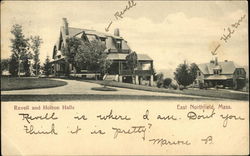 Revell
Holton
Revell and Holton Halls
East Northfield, Mass.
Revell is where I am. Don't you
think it is pretty?
Marion B.